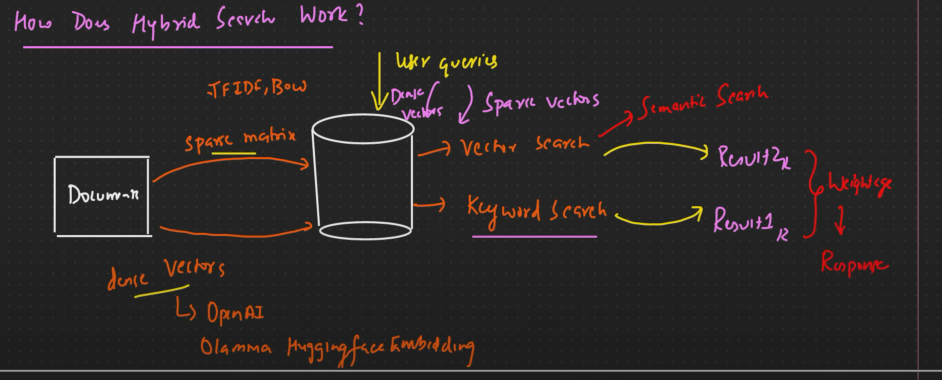 How Does Hybrid Search Work?
User queries
TFIDF, BOW
Dense vectors
Sparse vectors
Semantic Search
sparse matrix
Vector Search
Result2k
Weightage
Keyword Search
Result1k
Response
dense Vectors
OpenAI
Olamma Huggingface Embedding